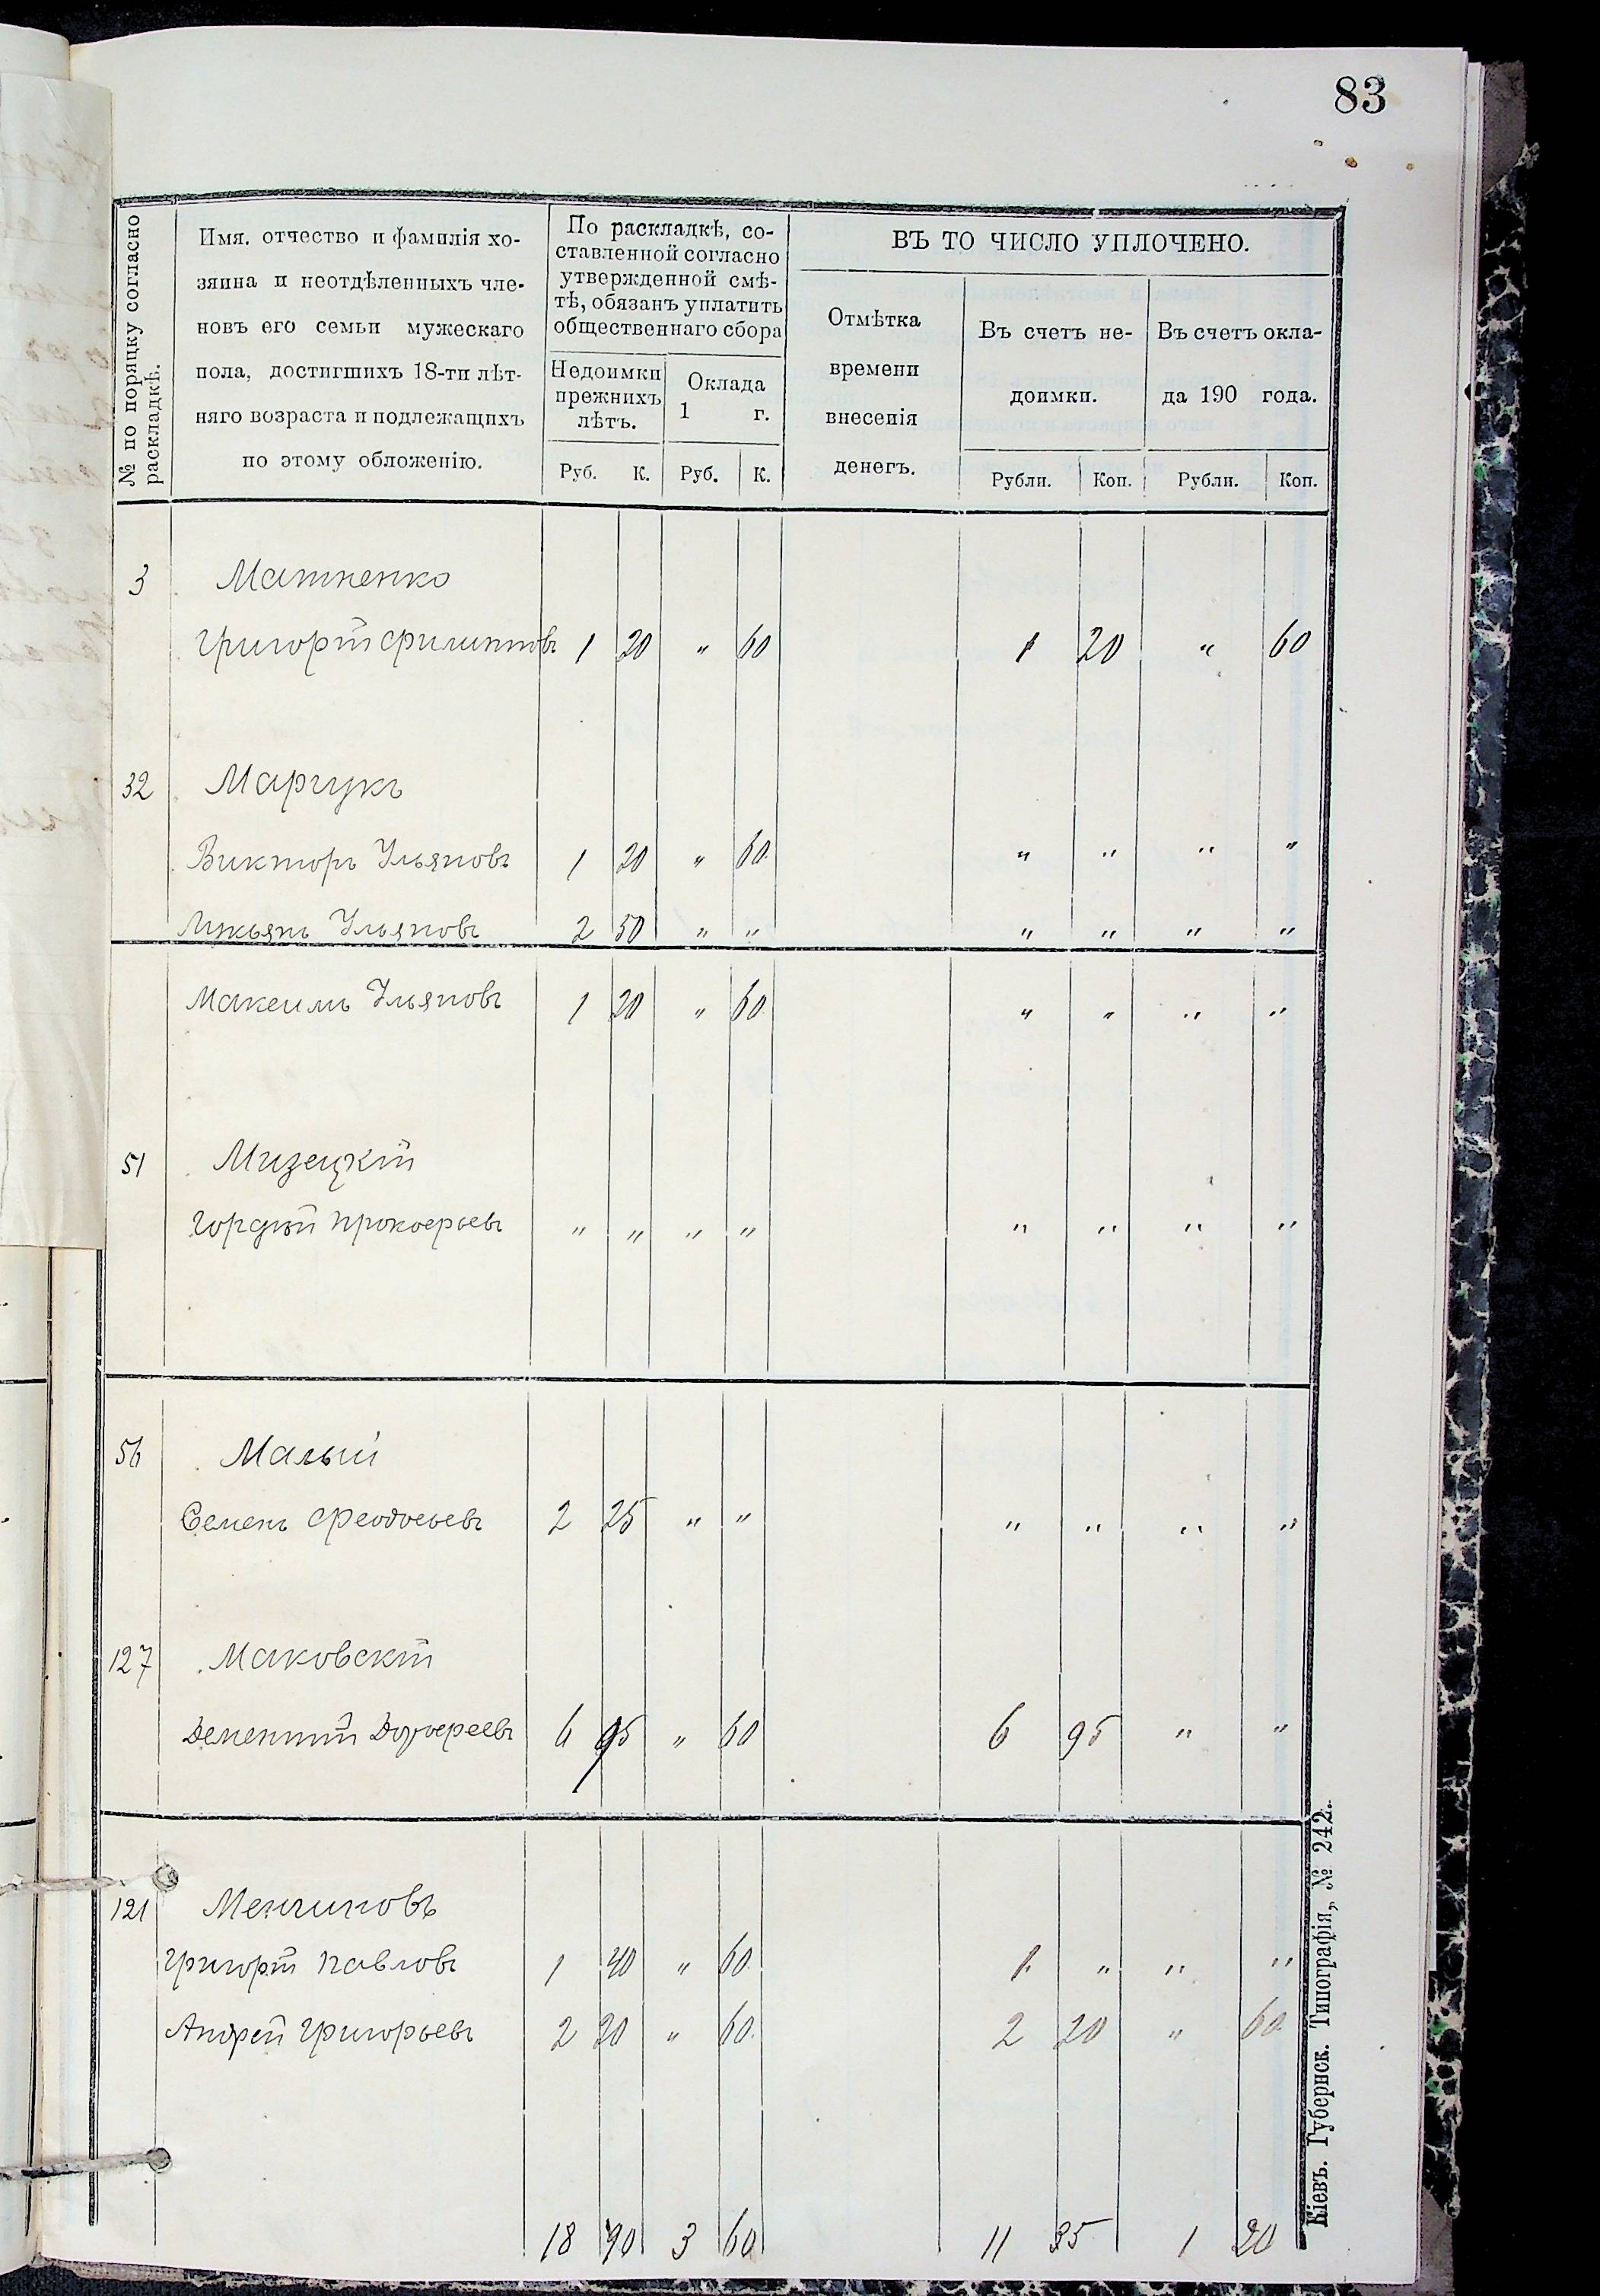 83
№ по поряцку согласно раскладкѣ.
Имя, отчество и фамилія хо-
зяина и неотдѣленныхъ чле-
новъ его семьи мужескаго
пола, достигшихъ 18-ти лѣт-
няго возраста и подлежащихъ
по этому обложенію.
По раскладкѣ, со-
ставленной согласно
утвержденной смѣ-
тѣ, обязанъ уплатить
общественнаго сбора
Недоимки
прежнихъ
лѣтъ.
Оклада
1 г.
Руб. К. Руб. К.
ВЪ ТО ЧИСЛО УПЛОЧЕНО.
Отмѣтка
времени
внесенія
денегъ.
Въ счетъ не-
доимки.
Въ счетъ окла-
да 190 года.
Рубли. Коп. Рубли. Коп.
3 Матненко
Григорій Филиповъ 1 20 " 60 1 20 " 60
32 Марчукъ
Викторъ Ульяновъ 1 20 " 60 " " " "
Лукьянъ Ульяновъ 2 50 " " " " " "
Максимъ Ульяновъ 1 20 " 60 " " " "
51 Мизецкій
Гордѣй Прокофьевъ " " " " " " " "
56 Малый
Семенъ Феодосьевъ 2 25 " " " " " "
127 Маковскій
Дементій Дорофеевъ 6 95 " 60 6 95 " "
121 Менчиковъ
Григорій Павловъ 1 40 " 60 1 " " "
Андрей Григорьевъ 2 20 " 60 2 20 " 60
18 90 3 60 11 35 1 20
Кіевъ. Губернск. Типографія, № 242.